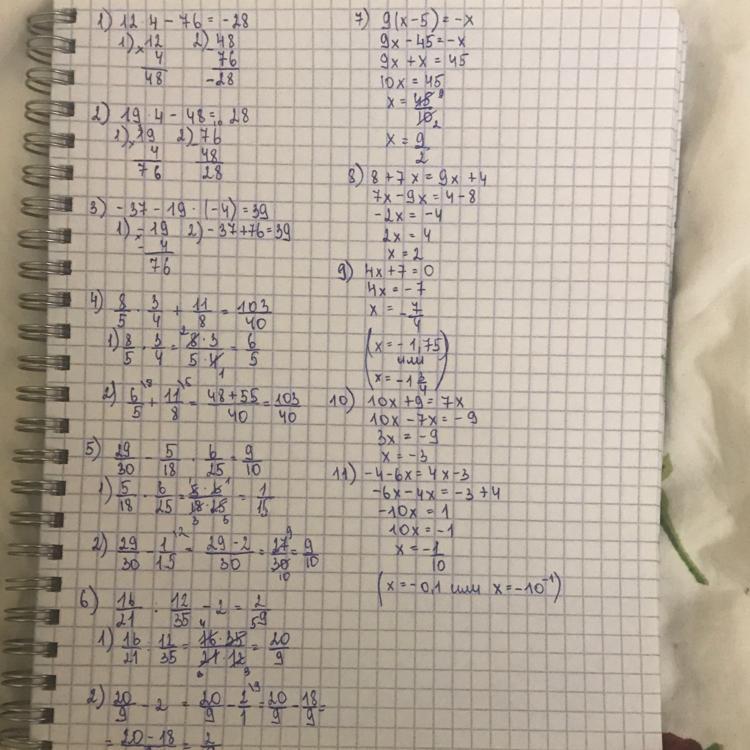 1) 12·4 - 76 = -28
1) ×12 2) -48
4 76
48 -28
2) 19·4 - 48 = 28
1) ×19 2) -76
4 48
76 28
3) -37 - 19·(-4) = 39
1) ×-19 2) -37+76=39
-4
76
4) 8/5 · 3/4 + 11/8 = 103/40
1) 8/5 · 3/4 = 8·3/5·4 = 6/5
2) 6/5 + 11/8 = 48+55/40 = 103/40
5) 29/30 - 5/18 · 6/25 = 9/10
1) 5/18 · 6/25 = 5·6/18·25 = 1/15
2) 29/30 - 1/15 = 29-2/30 = 27/30 = 9/10
6) 16/21 : 12/35 - 2 = 2/9
1) 16/21 : 12/35 = 16·35/21·12 = 20/9
2) 20/9 - 2 = 20/9 - 2/1 = 20/9 - 18/9 =
= 20-18 = 2
7) 9(x-5) = -x
9x - 45 = -x
9x + x = 45
10x = 45
x = 45/10
x = 9/2
8) 8+7x = 9x+4
7x-9x = 4-8
-2x = -4
2x = 4
x = 2
9) 4x+7 = 0
4x = -7
x = -7/4
(x = -1,75
или
x = -1 3/4)
10) 10x+9 = 7x
10x-7x = -9
3x = -9
x = -3
11) -4-6x = 4x-3
-6x-4x = -3+4
-10x = 1
10x = -1
x = -1/10
(x = -0,1 или x = -10⁻¹)